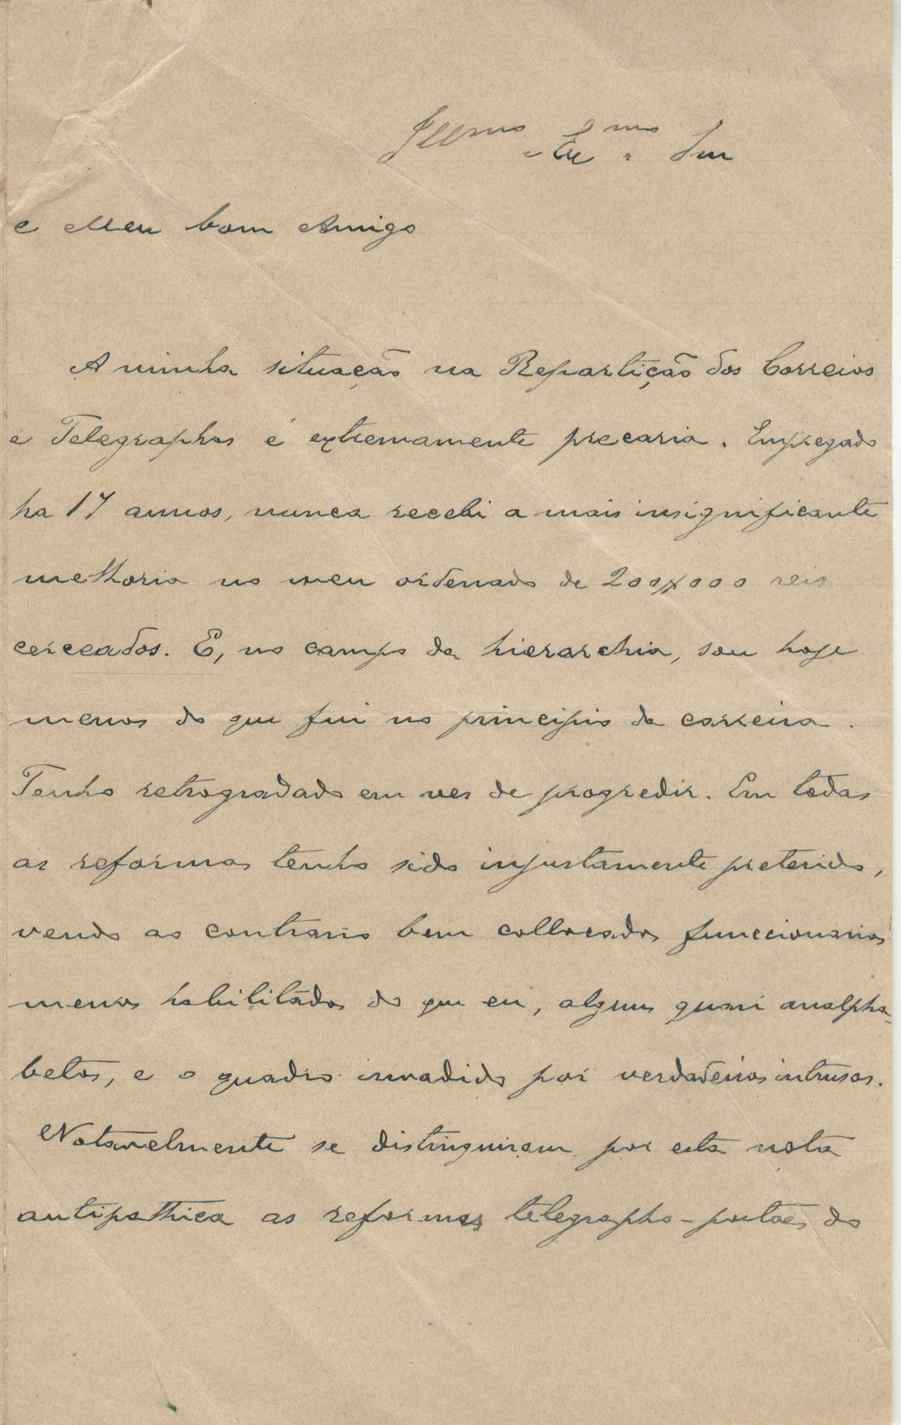 Illmo e Exmo Snr
e Meu bom Amigo
A minha situação na Repartição dos Correios
e Telegraphos é extremamente precaria. Empregado
ha 17 annos, nunca recebi a mais insignificante
melhoria no meu ordenado de 200$000 reis
cerceados. E, no campo da hierarchia, sou hoje
menos do que fui no principio da carreira.
Tenho retrogradado em ves de progredir. Em todas
as reformas tenho sido injustamente preterido,
vendo ao contrario bem collocados funccionarios
menos habilitados do que eu, alguns quasi analpha-
betos, e o quadro invadido por verdadeiros intrusos.
Notavelmente se distinguiram por esta nota
antipathica as reformas telegrapho-postaes do